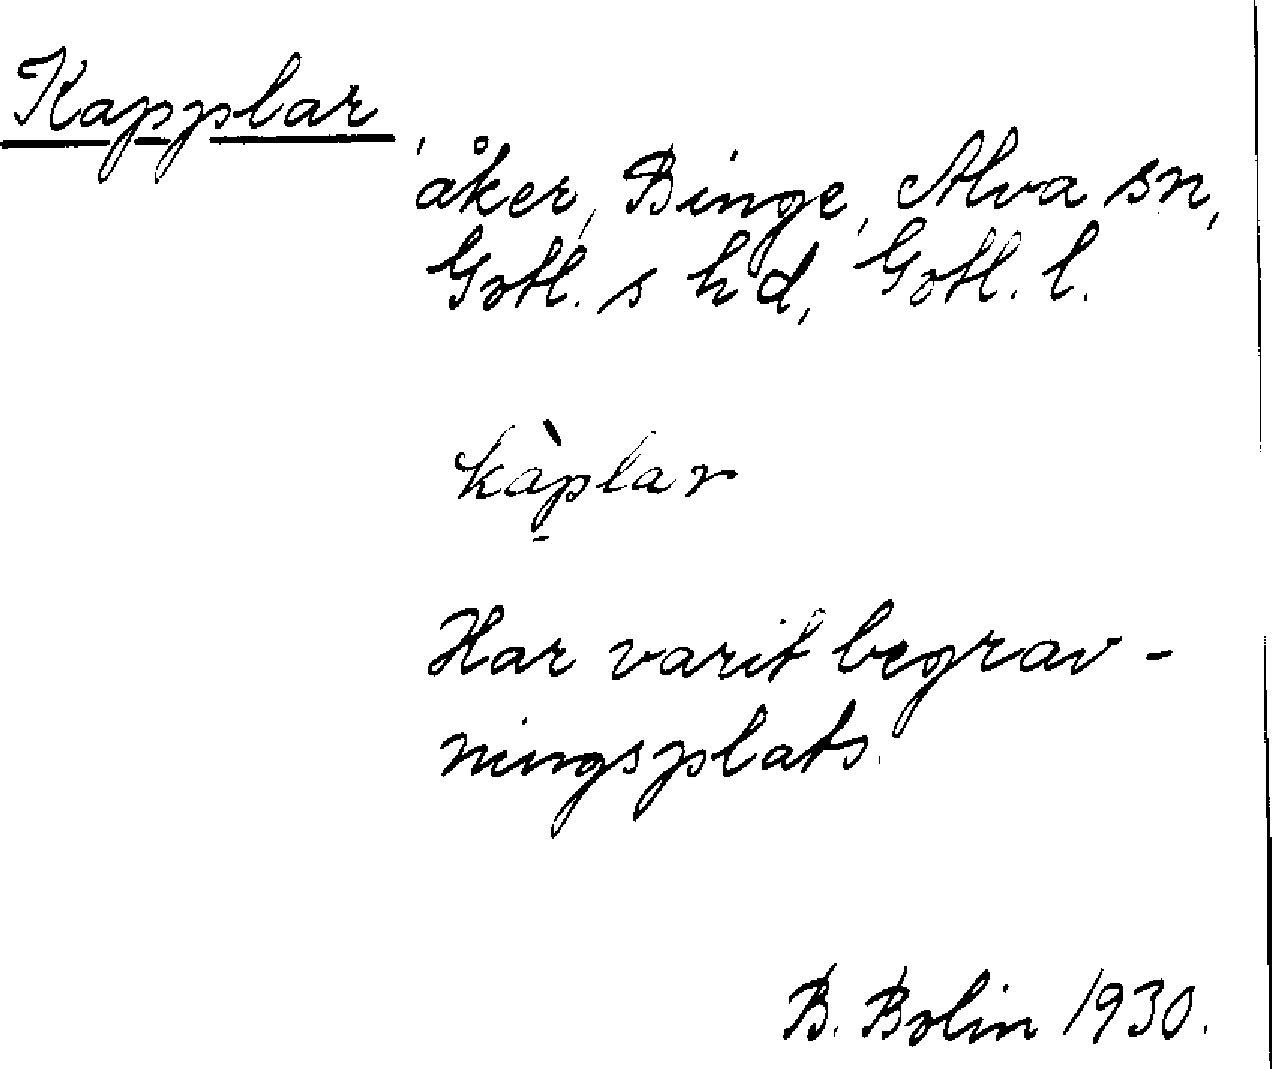 Kapplar
åker, Binge, Alva sn,
Gotl. s hd, Gotl. l.
kàp̱lar
Har varit begrav-
ningsplats.
B. Bolin 1930.